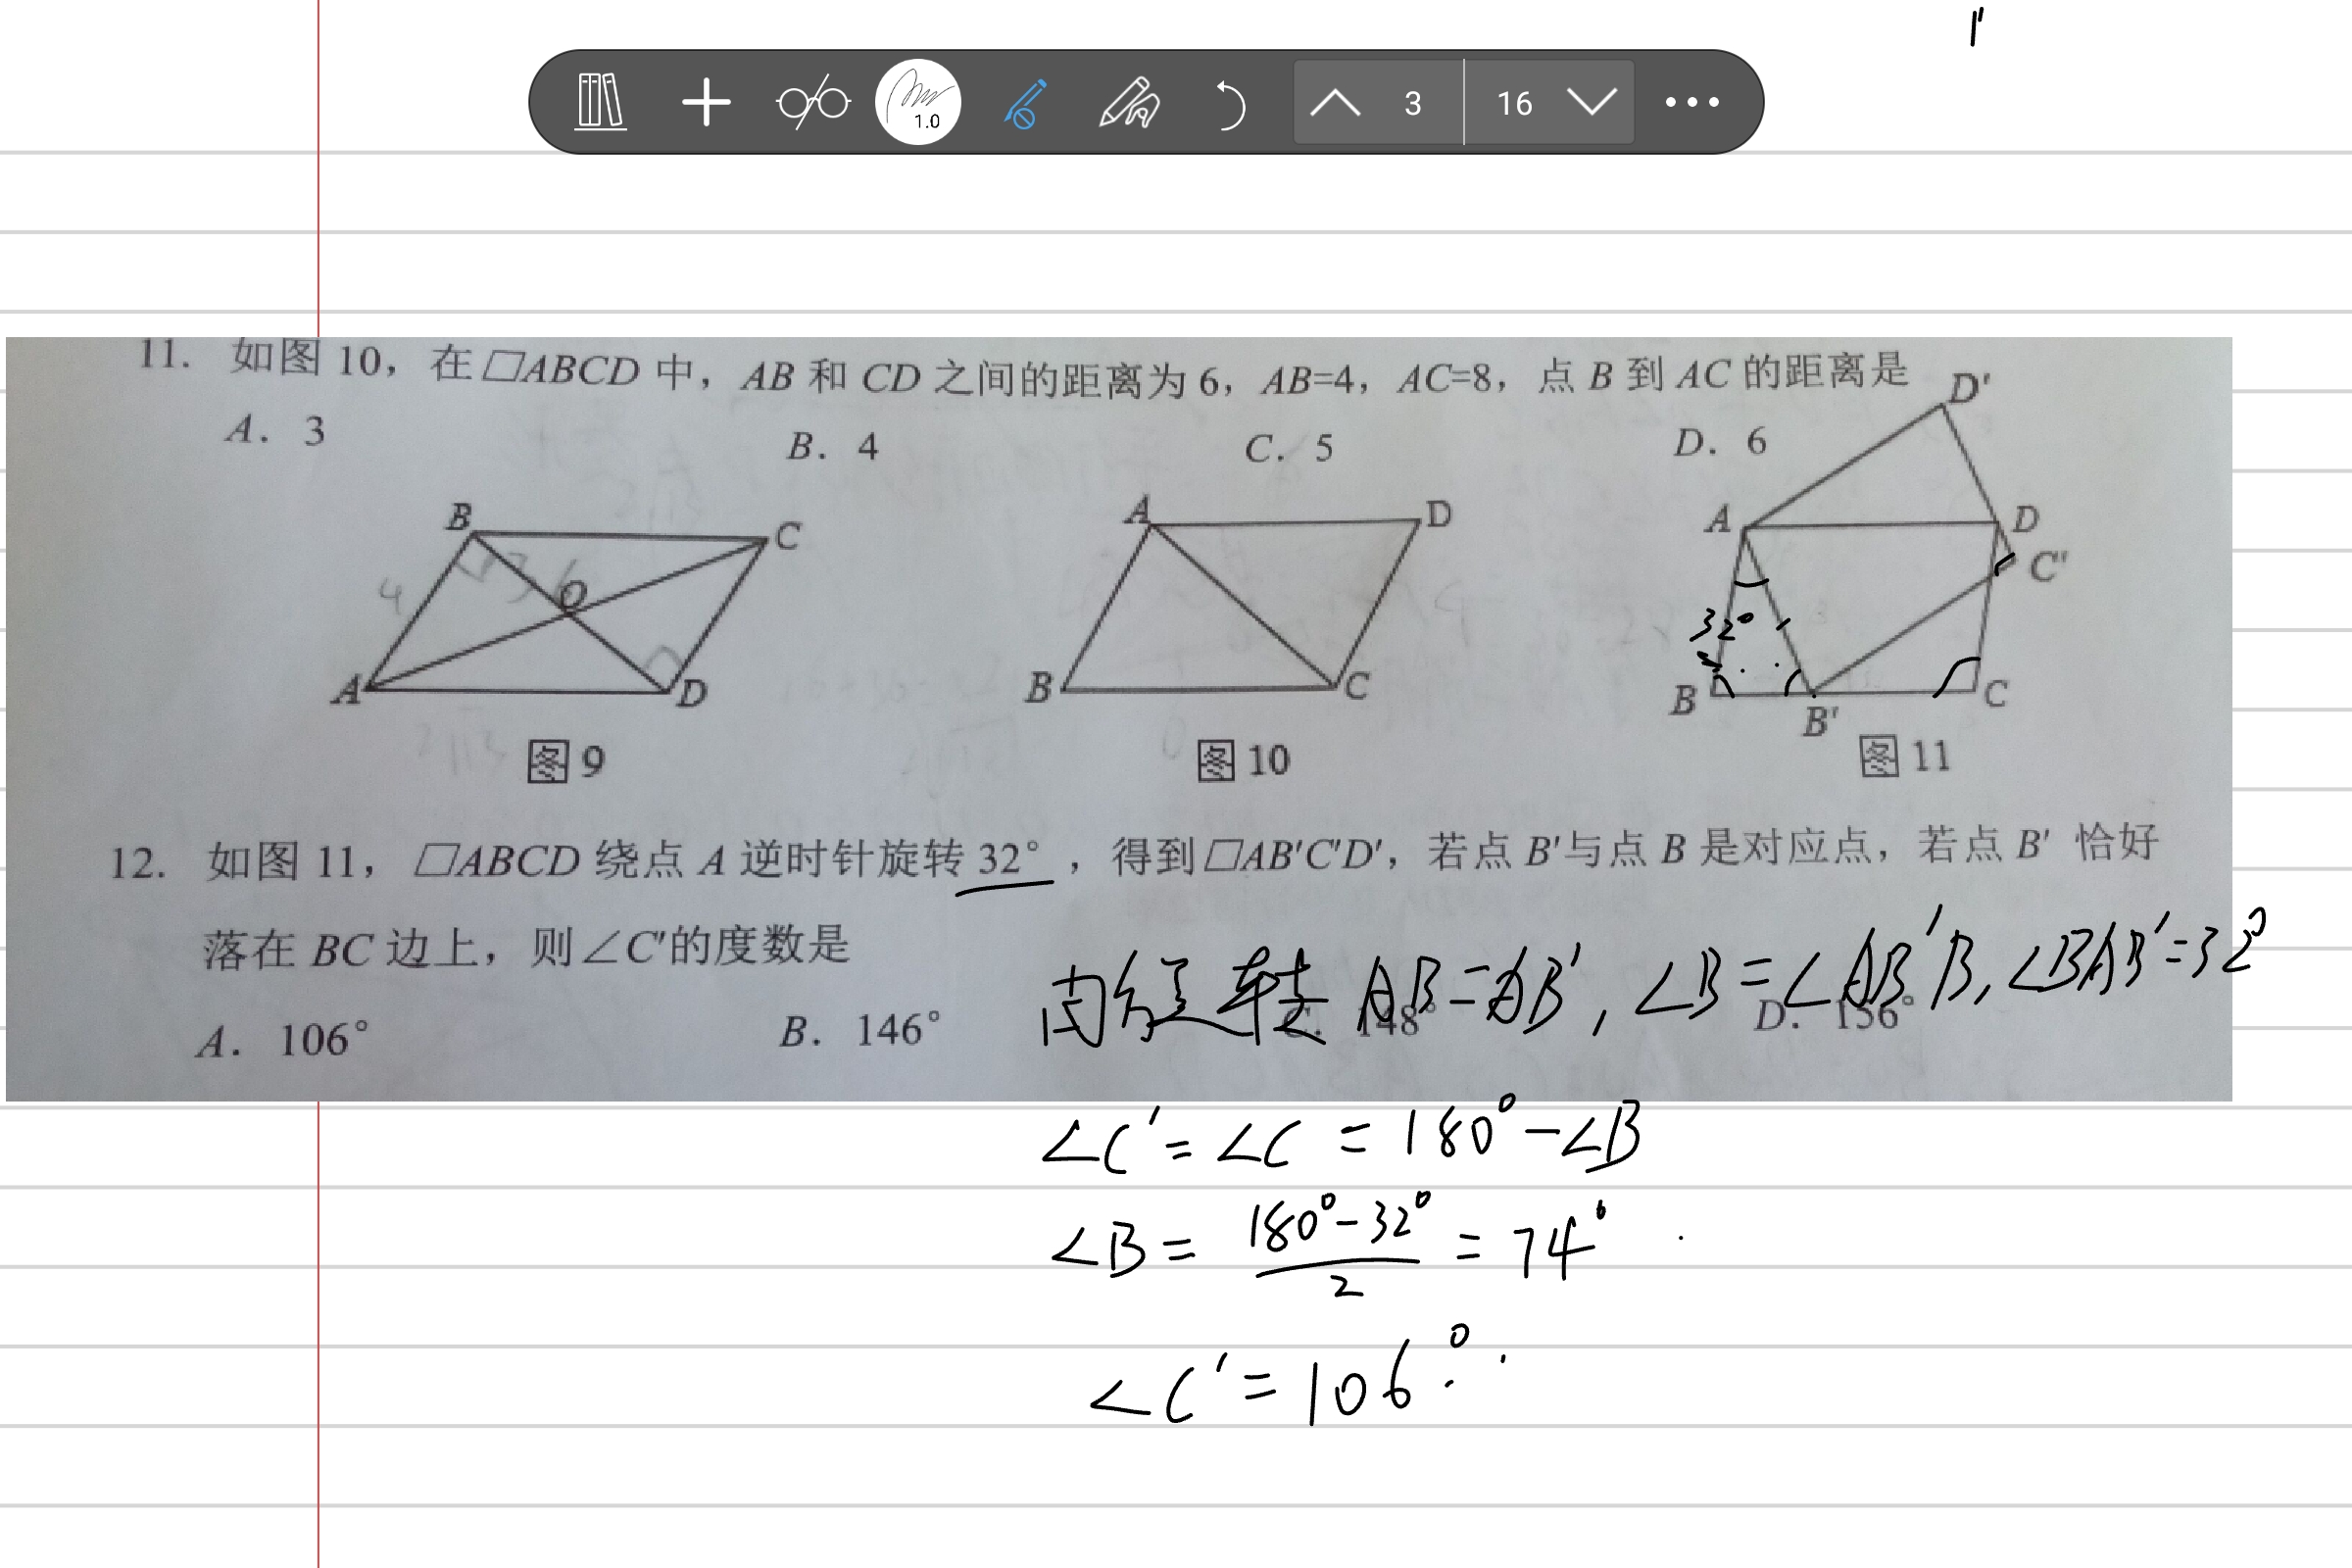 1.0
3
16
11. 如图 10，在□ABCD 中，AB 和 CD 之间的距离为 6，AB=4，AC=8，点 B 到 AC 的距离是
A. 3
B. 4
C. 5
D. 6
B
C
4
3
6
O
A
D
图 9
A
D
B
C
图 10
D'
A
D
C'
32°
B
B'
C
图 11
12. 如图 11，□ABCD 绕点 A 逆时针旋转 32°，得到□AB'C'D'，若点 B'与点 B 是对应点，若点 B' 恰好
落在 BC 边上，则∠C'的度数是
A. 106°
B. 146°
C. 148°
D. 156°
由旋转 AB=AB', ∠B=∠AB'B, ∠BAB'=32°
∠C'=∠C=180°-∠B
∠B=180°-32°/2=74°.
∠C'=106°.